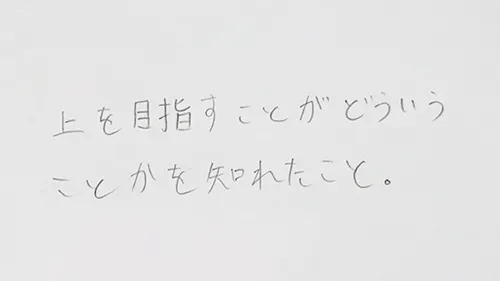 上を目指すことがどういう
ことかを知れたこと。